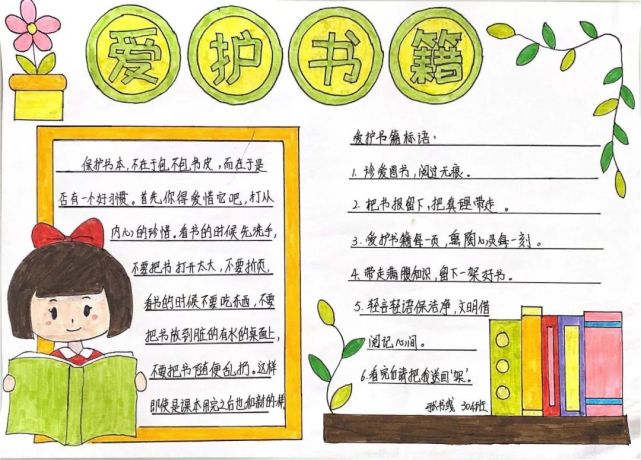 爱护书籍
保护书本,不在于包不包书皮,而在于是
否有一个好习惯。首先,你得爱惜它吧,打从
内心的珍惜。看书的时候先洗手,
不要把书打开太大,不要折页,
看书的时候不要吃东西,不要
把书放到脏的有水的桌面上,
不要把书随便乱扔。这样
即使是课本用完之后也和新的一样
爱护书籍标语:
1. 珍爱图书,阅过无痕。
2. 把书报留下,把真理带走。
3. 爱护书籍每一页,熏陶心灵每一刻。
4. 带走满腹知识,留下一架好书。
5. 轻言轻语保洁净,文明借
阅记心间。
6. 看完自请把我送回'架'。
304班